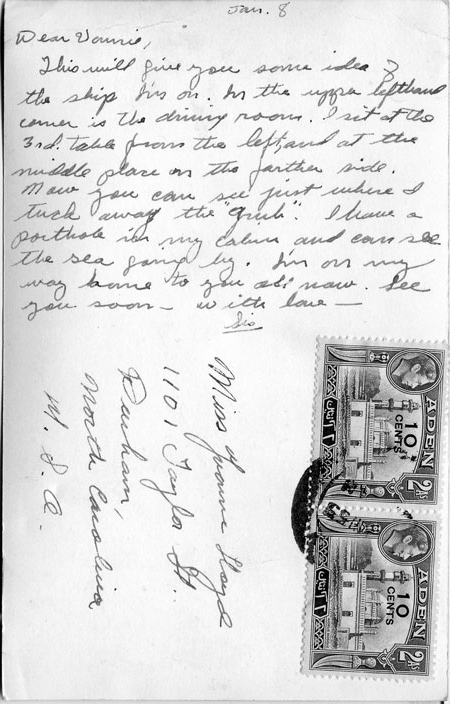 Jan. 8
Dear Vonnie,
This will give you some idea of
the ship I'm on. In the upper lefthand
corner is the dining room. I sit at the
3rd. table from the left, and at the
middle place on the farther side.
Now you can see just where I
tuck away the "grub". I have a
porthole in my cabin, and can see
the sea going by. I'm on my
way home to you all now. See
you soon — with love —
Sis
Miss Yvonne Lloyd
1101 Taylor St.
Durham,
North Carolina
U. S. A.
ADEN
10
CENTS
2As
ADEN
10
CENTS
2As